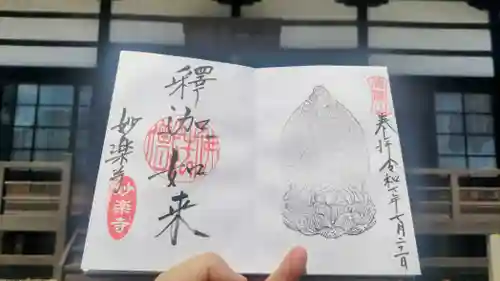 奉拝 令和七年七月二十一日
釋迦如来
妙楽寺
妙楽寺